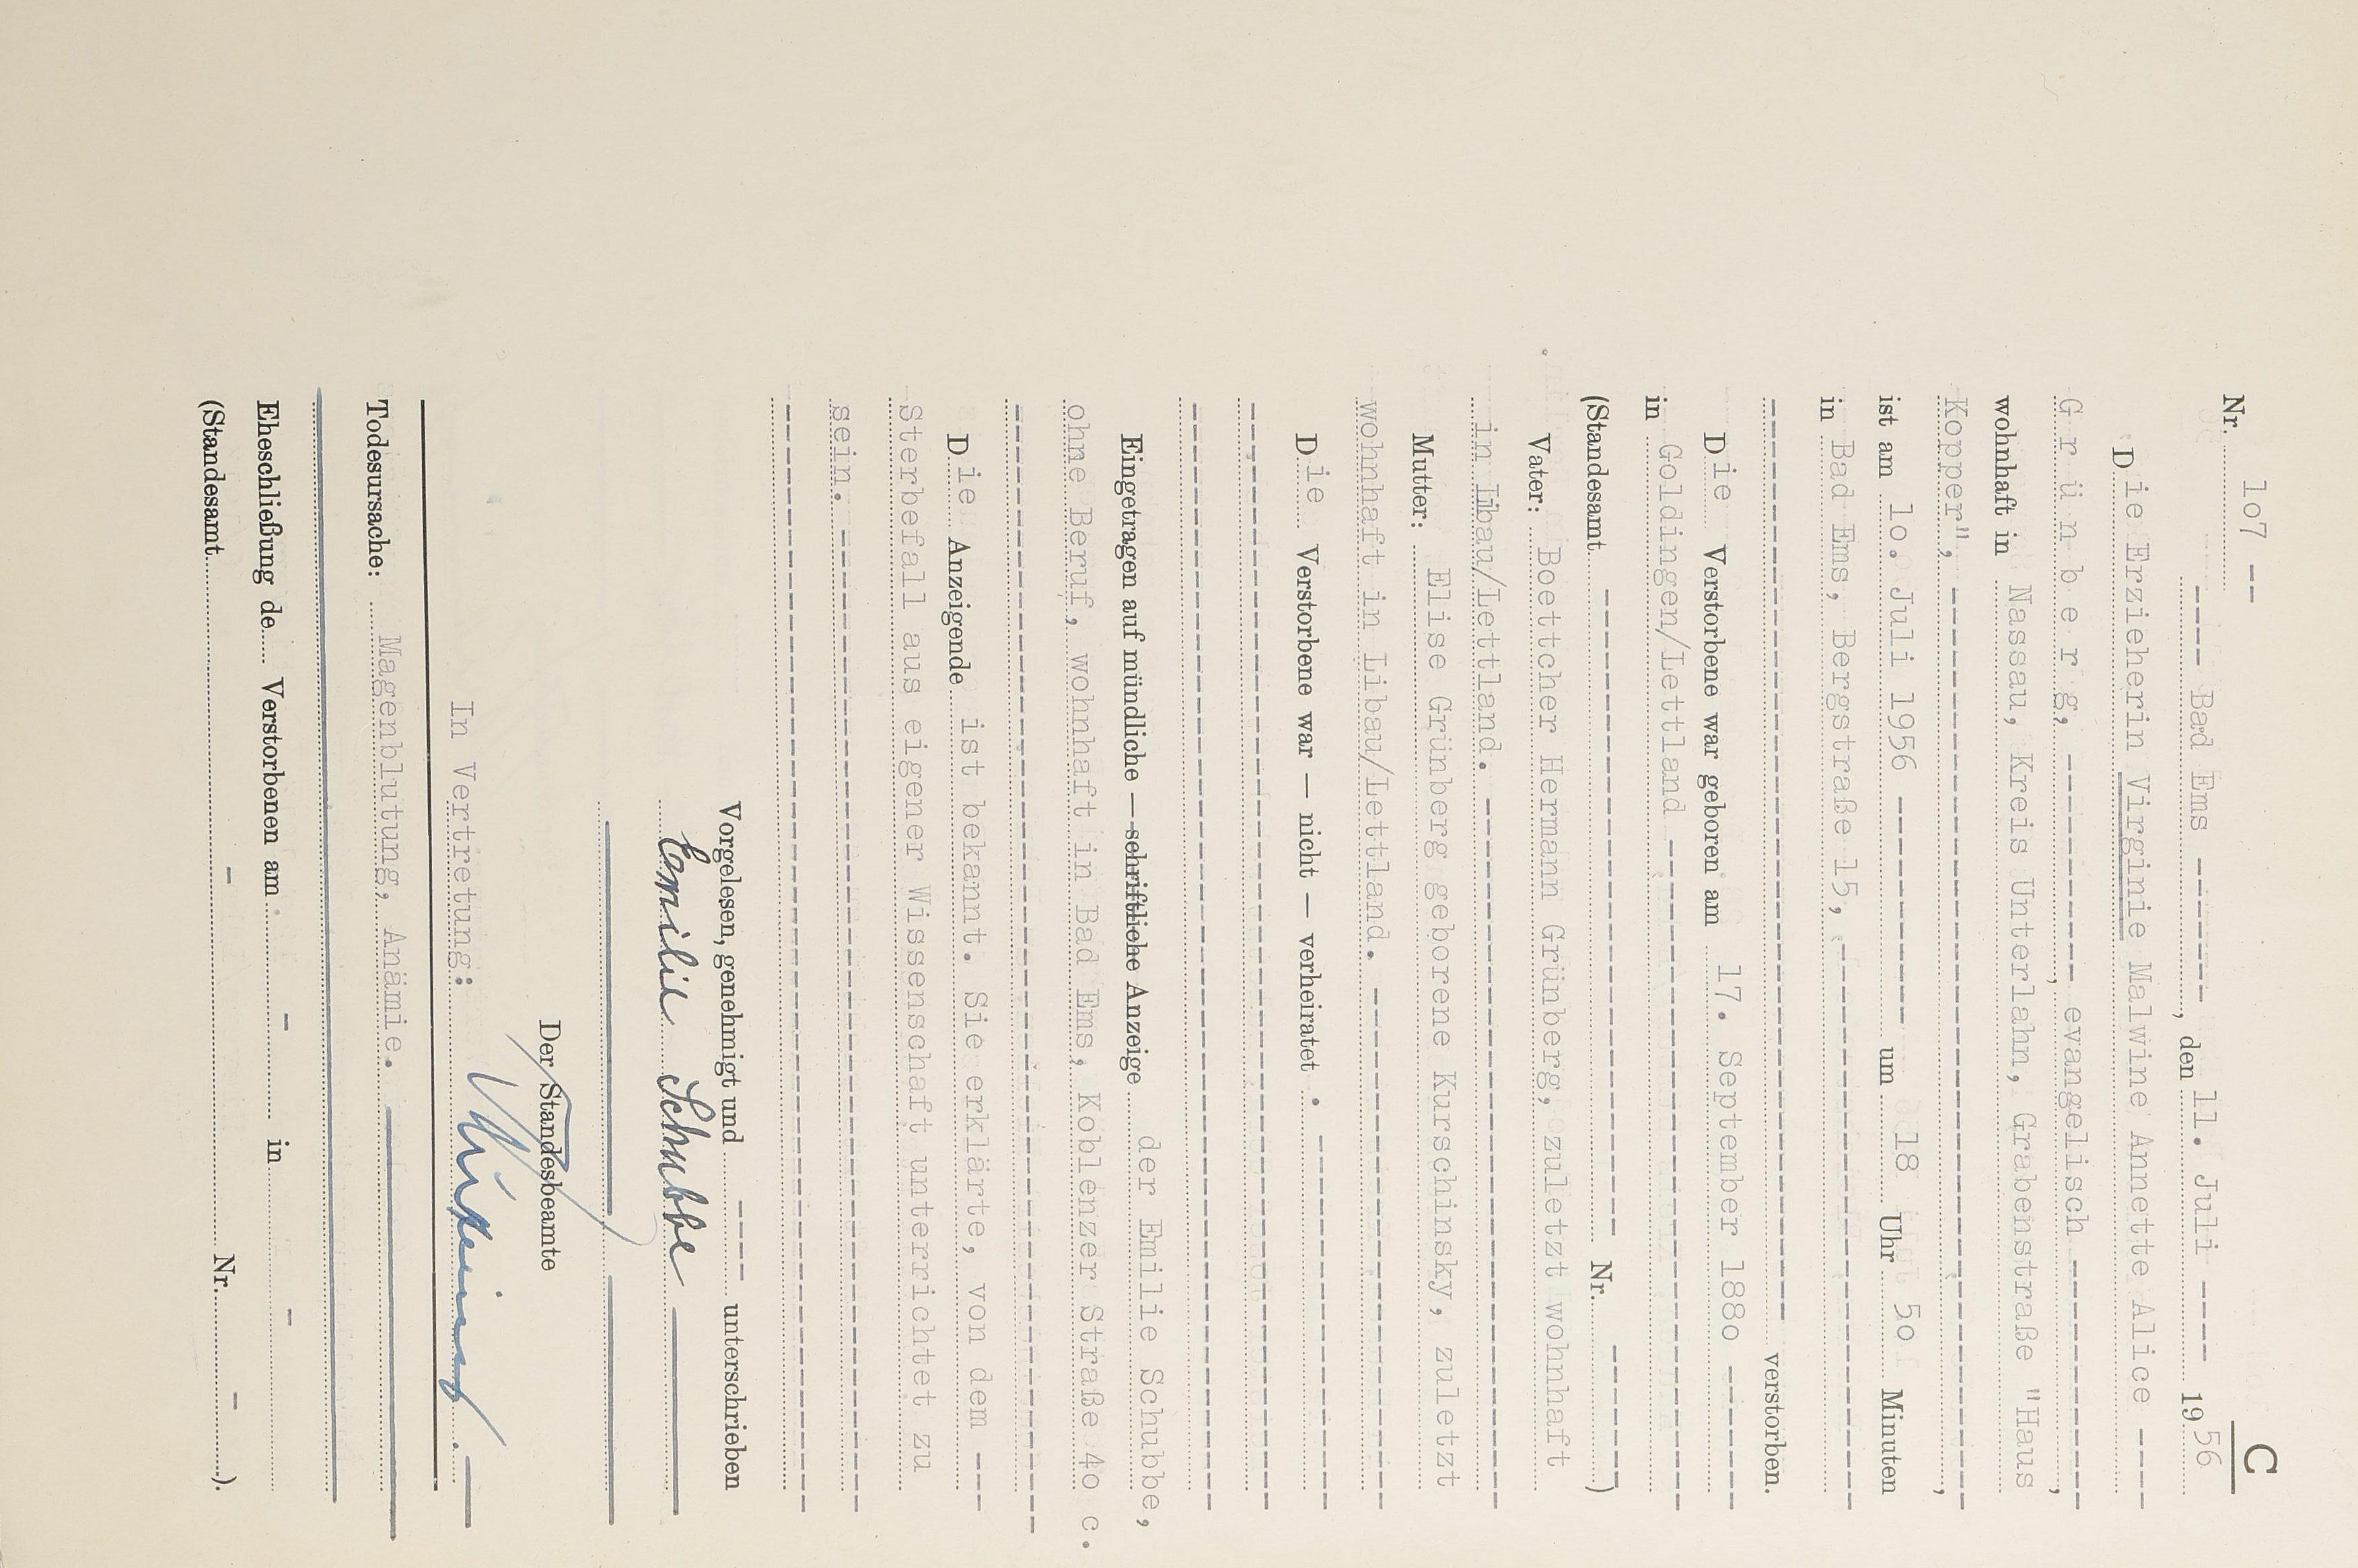 C
Nr. 1o7 --
---- Bad Ems -------, den 11. Juli ---- 1956
Die Erzieherin Virginie Malwine Annette Alice ----
G r ü n b e r g, ----------- evangelisch ------------,
wohnhaft in Nassau, Kreis Unterlahn, Grabenstraße "Haus
Kopper", ------------------------------------------,
ist am 1o. Juli 1956 ----------- um 18 Uhr 5o Minuten
in Bad Ems, Bergstraße 15, ---------------------------
------------------------------------------ verstorben.
Die Verstorbene war geboren am 17. September 188o ------
in Goldingen/Lettland --------------------------------
(Standesamt -------------------------------- Nr. ------)
Vater: Boettcher Hermann Grünberg, zuletzt wohnhaft
in Libau/Lettland. -----------------------------------
Mutter: Elise Grünberg geborene Kurschinsky, zuletzt
wohnhaft in Libau/Lettland. --------------------------
Die Verstorbene war — nicht — verheiratet . -----------
------------------------------------------------------
------------------------------------------------------
Eingetragen auf mündliche — schriftliche Anzeige der Emilie Schubbe,
ohne Beruf, wohnhaft in Bad Ems, Koblenzer Straße 4o c.
------------------------------------------------------
Die Anzeigende ist bekannt. Sie erklärte, von dem ---
Sterbefall aus eigener Wissenschaft unterrichtet zu
sein. ------------------------------------------------
------------------------------------------------------
Vorgelesen, genehmigt und ---- unterschrieben
Emilie Schubbe
Der Standesbeamte
In Vertretung:
Todesursache: Magenblutung, Anämie.
Eheschließung de Verstorbenen am - in -
(Standesamt - Nr. -).